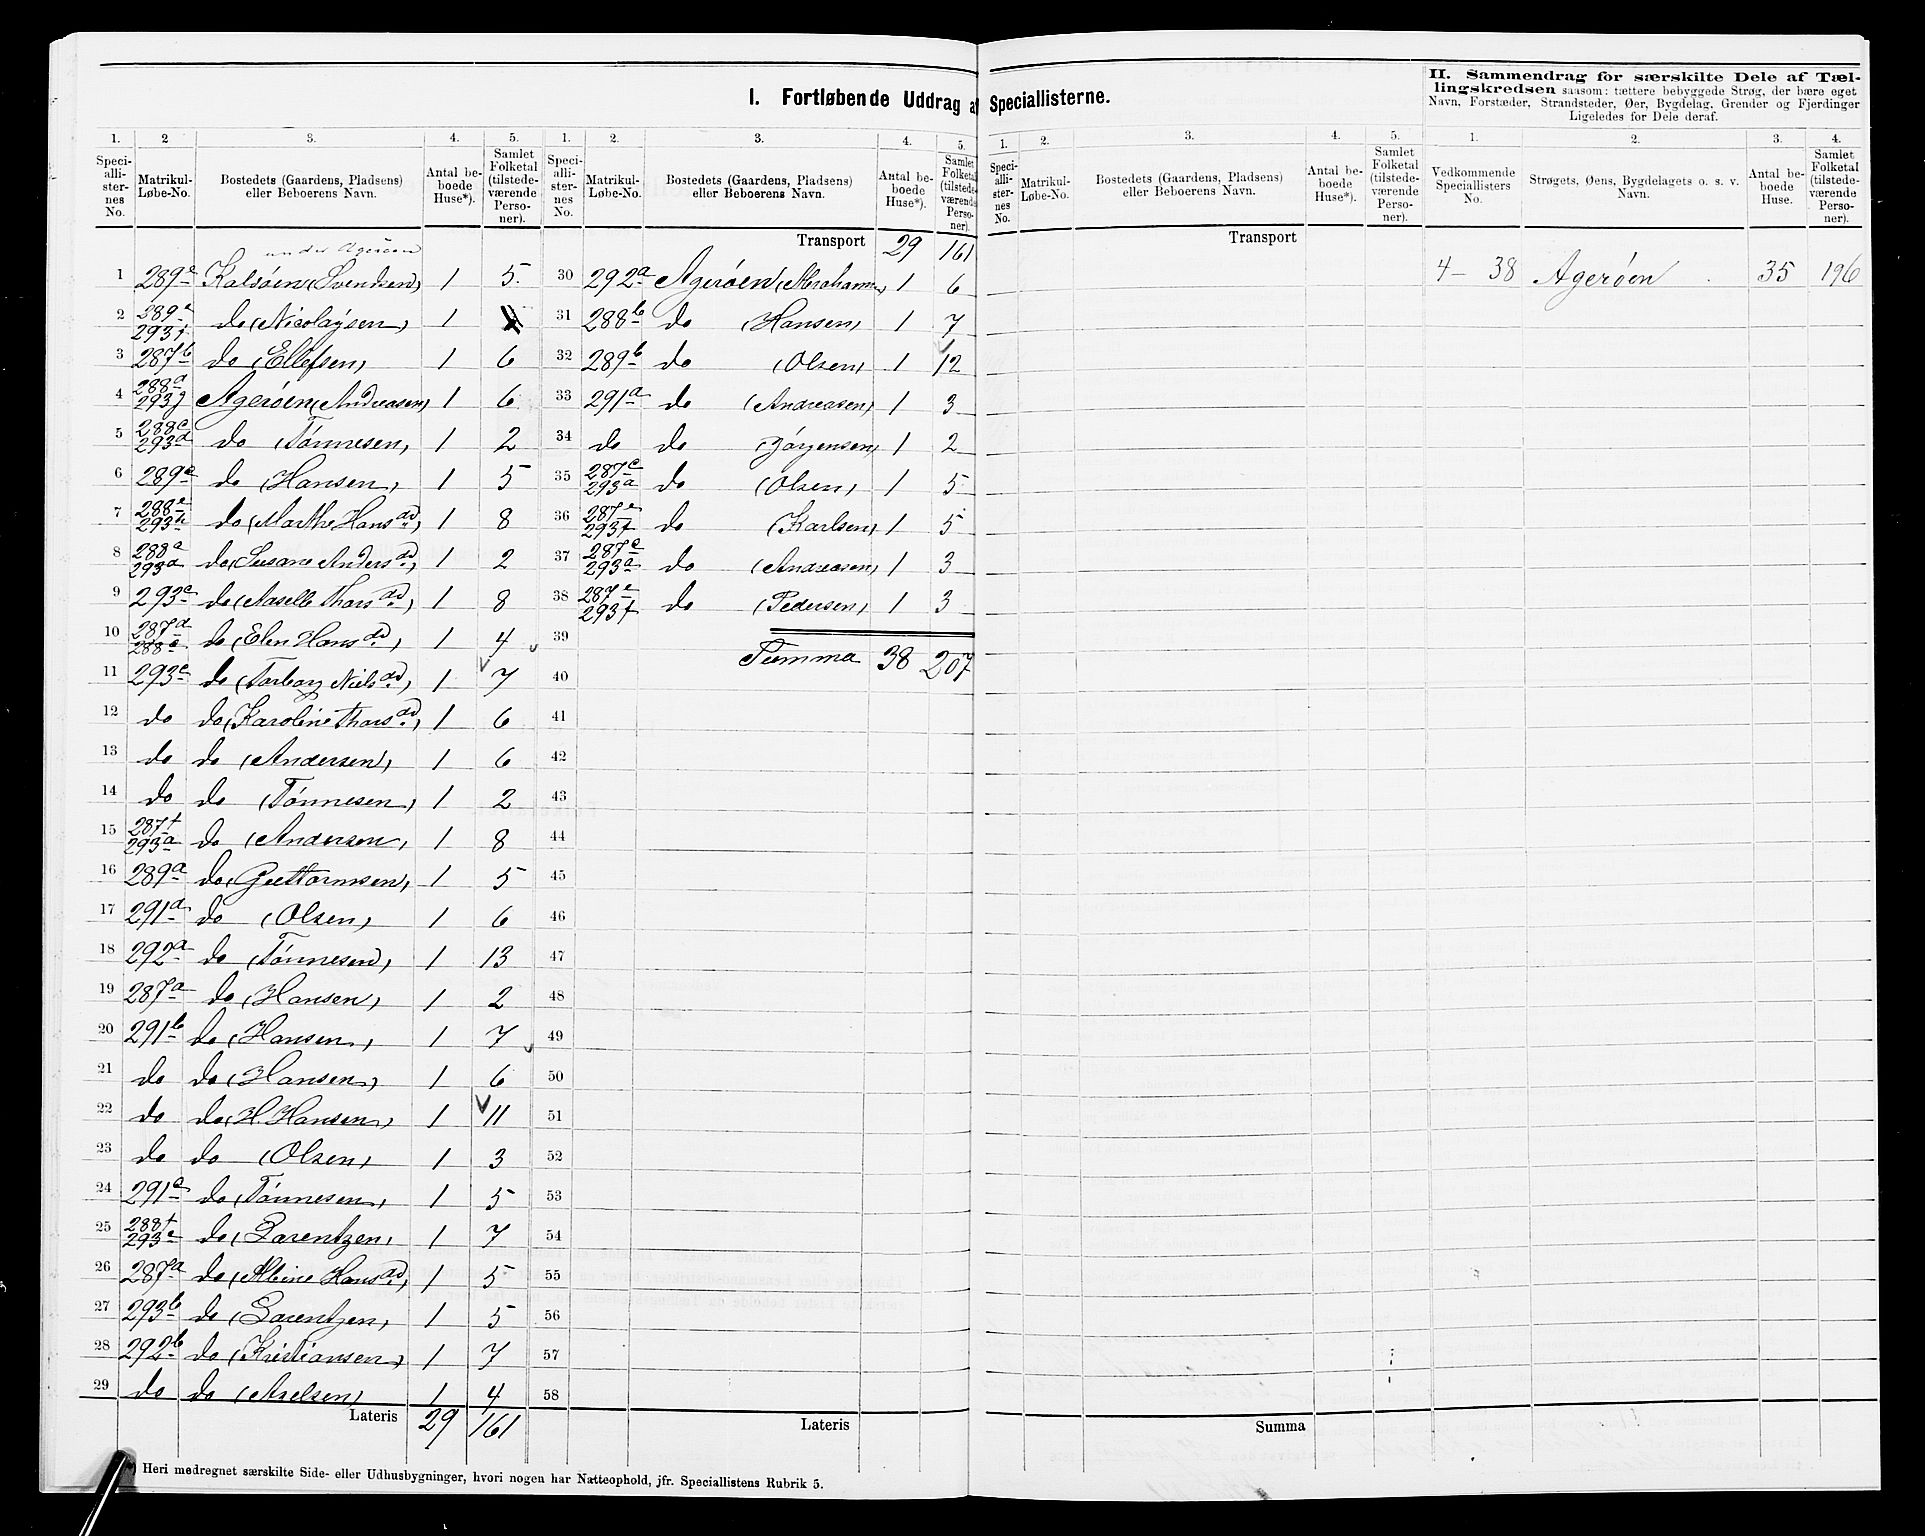 I. Fortløbende Uddrag af Speciallisterne.
II. Sammendrag for særskilte Dele af Tæl-
lingskredsen saasom: tættere bebyggede Strøg, der bære eget
Navn, Forstæder, Strandsteder, Øer, Bygdelag, Grender og Fjerdinger
Ligeledes for Dele deraf.
1. 2 3. 4. 5. 1. 2. 3. 4. 5.
Speci-alli-ster-nes No. Matrikul-Løbe-No. Bostedets (Gaardens, Pladsens) eller Beboerens Navn. Antal be-boede Huse*). Samlet Folketal (tilstede-værende Perso-ner).
Speci-alli-ster-nes No. Matrikul-Løbe-No. Bostedets (Gaardens, Pladsens) eller Beboerens Navn. Antal be-boede Huse*). Samlet Folketal (tilstede-værende Perso-ner).
under Agerøen
1 289e Kalsøen (Svendsen) 1 5
2 289e 293f do (Nicolaysen) 1
3 287b do (Ellefsen) 1 6
4 288d 293g Agerøen (Andreasen) 1 6
5 288c 293d do (Tönnesen) 1 2
6 289a do (Hansen) 1 5
7 288e 293h do (Marthe Hansdd) 1 8
8 288a 293a do (Susane Andersdd) 1 2
9 293e do (Aaselle Tharsdd) 1 8
10 287d 288e do (Elen Hansdd) 1 4
11 293e do (Tarborg Nielsdd) 1 7
12 do do (Karoline Tharsdd) 1 6
13 do do (Andersen) 1 6
14 do do (Tönnesen) 1 2
15 287f 293a do (Andersen) 1 8
16 289a do (Guttormsen) 1 5
17 291a do (Olsen) 1 6
18 292a do (Tönnesen) 1 13
19 287a do (Hansen) 1 2
20 291b do (Hansen) 1 7
21 do do (Hansen) 1 6
22 do do (H. Hansen) 1 11
23 do do (Olsen) 1 3
24 291a do (Tönnesen) 1 5
25 288f 293e do (Larentzen) 1 7
26 287a do (Albine Hansdd) 1 5
27 293b do (Larentzen) 1 5
28 292b do (Kristiansen) 1 7
29 do do (Axelsen) 1 4
Lateris 29 161
Transport 29 161
30 292a Agerøen (Abrahams) 1 6
31 288b do (Hansen) 1 7
32 289b do (Olsen) 1 12
33 291a do (Andreasen) 1 3
34 do do (Jörgensen) 1 2
35 287c 293a do (Olsen) 1 5
36 287e 293f do (Karlsen) 1 5
37 287c 293a do (Andreasen) 1 3
38 287e 293f do (Pedersen) 1 3
39
Summa 38 207
40
41
42
43
44
45
46
47
48
49
50
51
52
53
54
55
56
57
58
Lateris
1. 2. 3. 4. 5.
Speci-alli-ster-nes No. Matrikul-Løbe-No. Bostedets (Gaardens, Pladsens) eller Beboerens Navn. Antal be-boede Huse*). Samlet Folketal (tilstede-værende Perso-ner).
Transport
Summa
1. 2. 3. 4.
Vedkommende Speciallisters No. Strøgets, Øens, Bygdelagets o. s. v. Navn. Antal be-boede Huse. Samlet Folketal (tilstede-værende Perso-ner).
4 – 38 Agerøen 35 196
*) Heri medregnet særskilte Side- eller Udhusbygninger, hvori nogen har Natteophold, jfr. Speciallistens Rubrik 5.